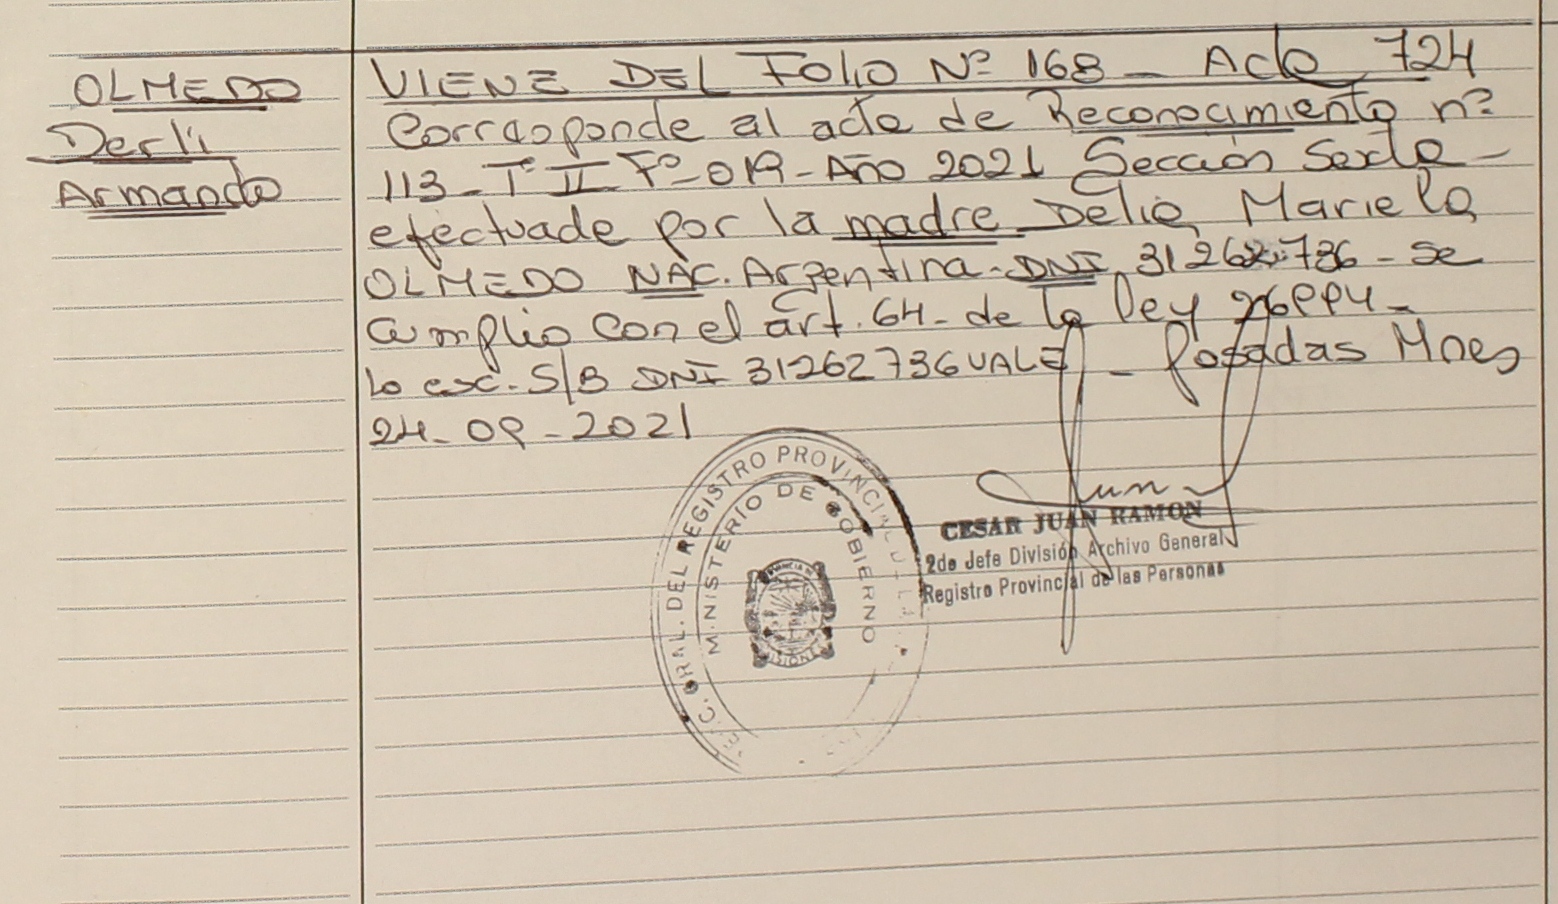 OLMEDO
Derli
Armando
VIENE DEL Folio Nº 168 - Acta 724
Corresponde al acta de Reconocimiento nº
113 - Tº II Fº - 019 - Año 2021 Sección Sexta -
efectuada por la madre Delia Mariela
OLMEDO NAC. Argentina - DNI 31262.736 - Se
cumplio con el art. 64 - de la ley 26994 -
Lo esc. S/B DNI 31262736 VALE - Posadas Mnes
24-09-2021
GRAL. DEL REGISTRO PROVINCIAL DE LA
MINISTERIO DE GOBIERNO
MISIONES
CESAR JUAN RAMON
2do Jefe División Archivo General
Registro Provincial de las Personas